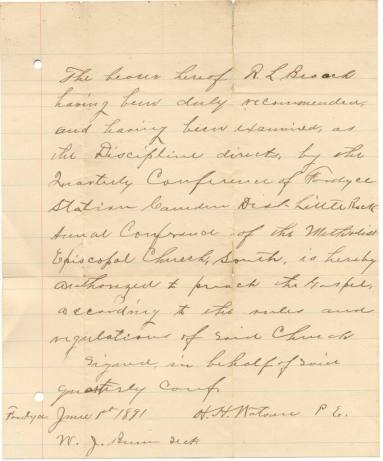 The bearer hereof R. L. Beard
having been duly recommended,
and having been examined, as
the Discipline directs, by the
Quarterly Conference of Fordyce
Station Camden Dist. Little Rock
Annual Conference of the Methodist
Episcopal Church, South, is hereby
authorized to preach the Gospel,
according to the rules and
regulations of said Church
Signed, in behalf of said
quarterly Conf.
Fordyce June 1st 1891 H. H. Watson P. E.
W. J.